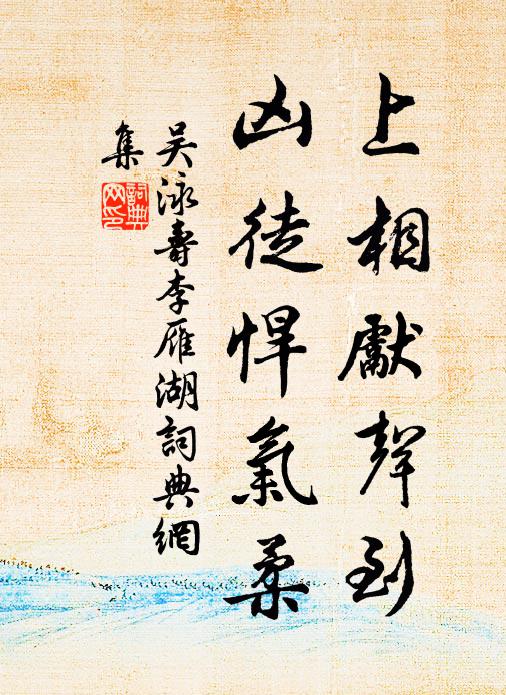 上相獻聲到
凶徒悍氣柔
吳泳壽李雁湖詞典網
集
詞典網印